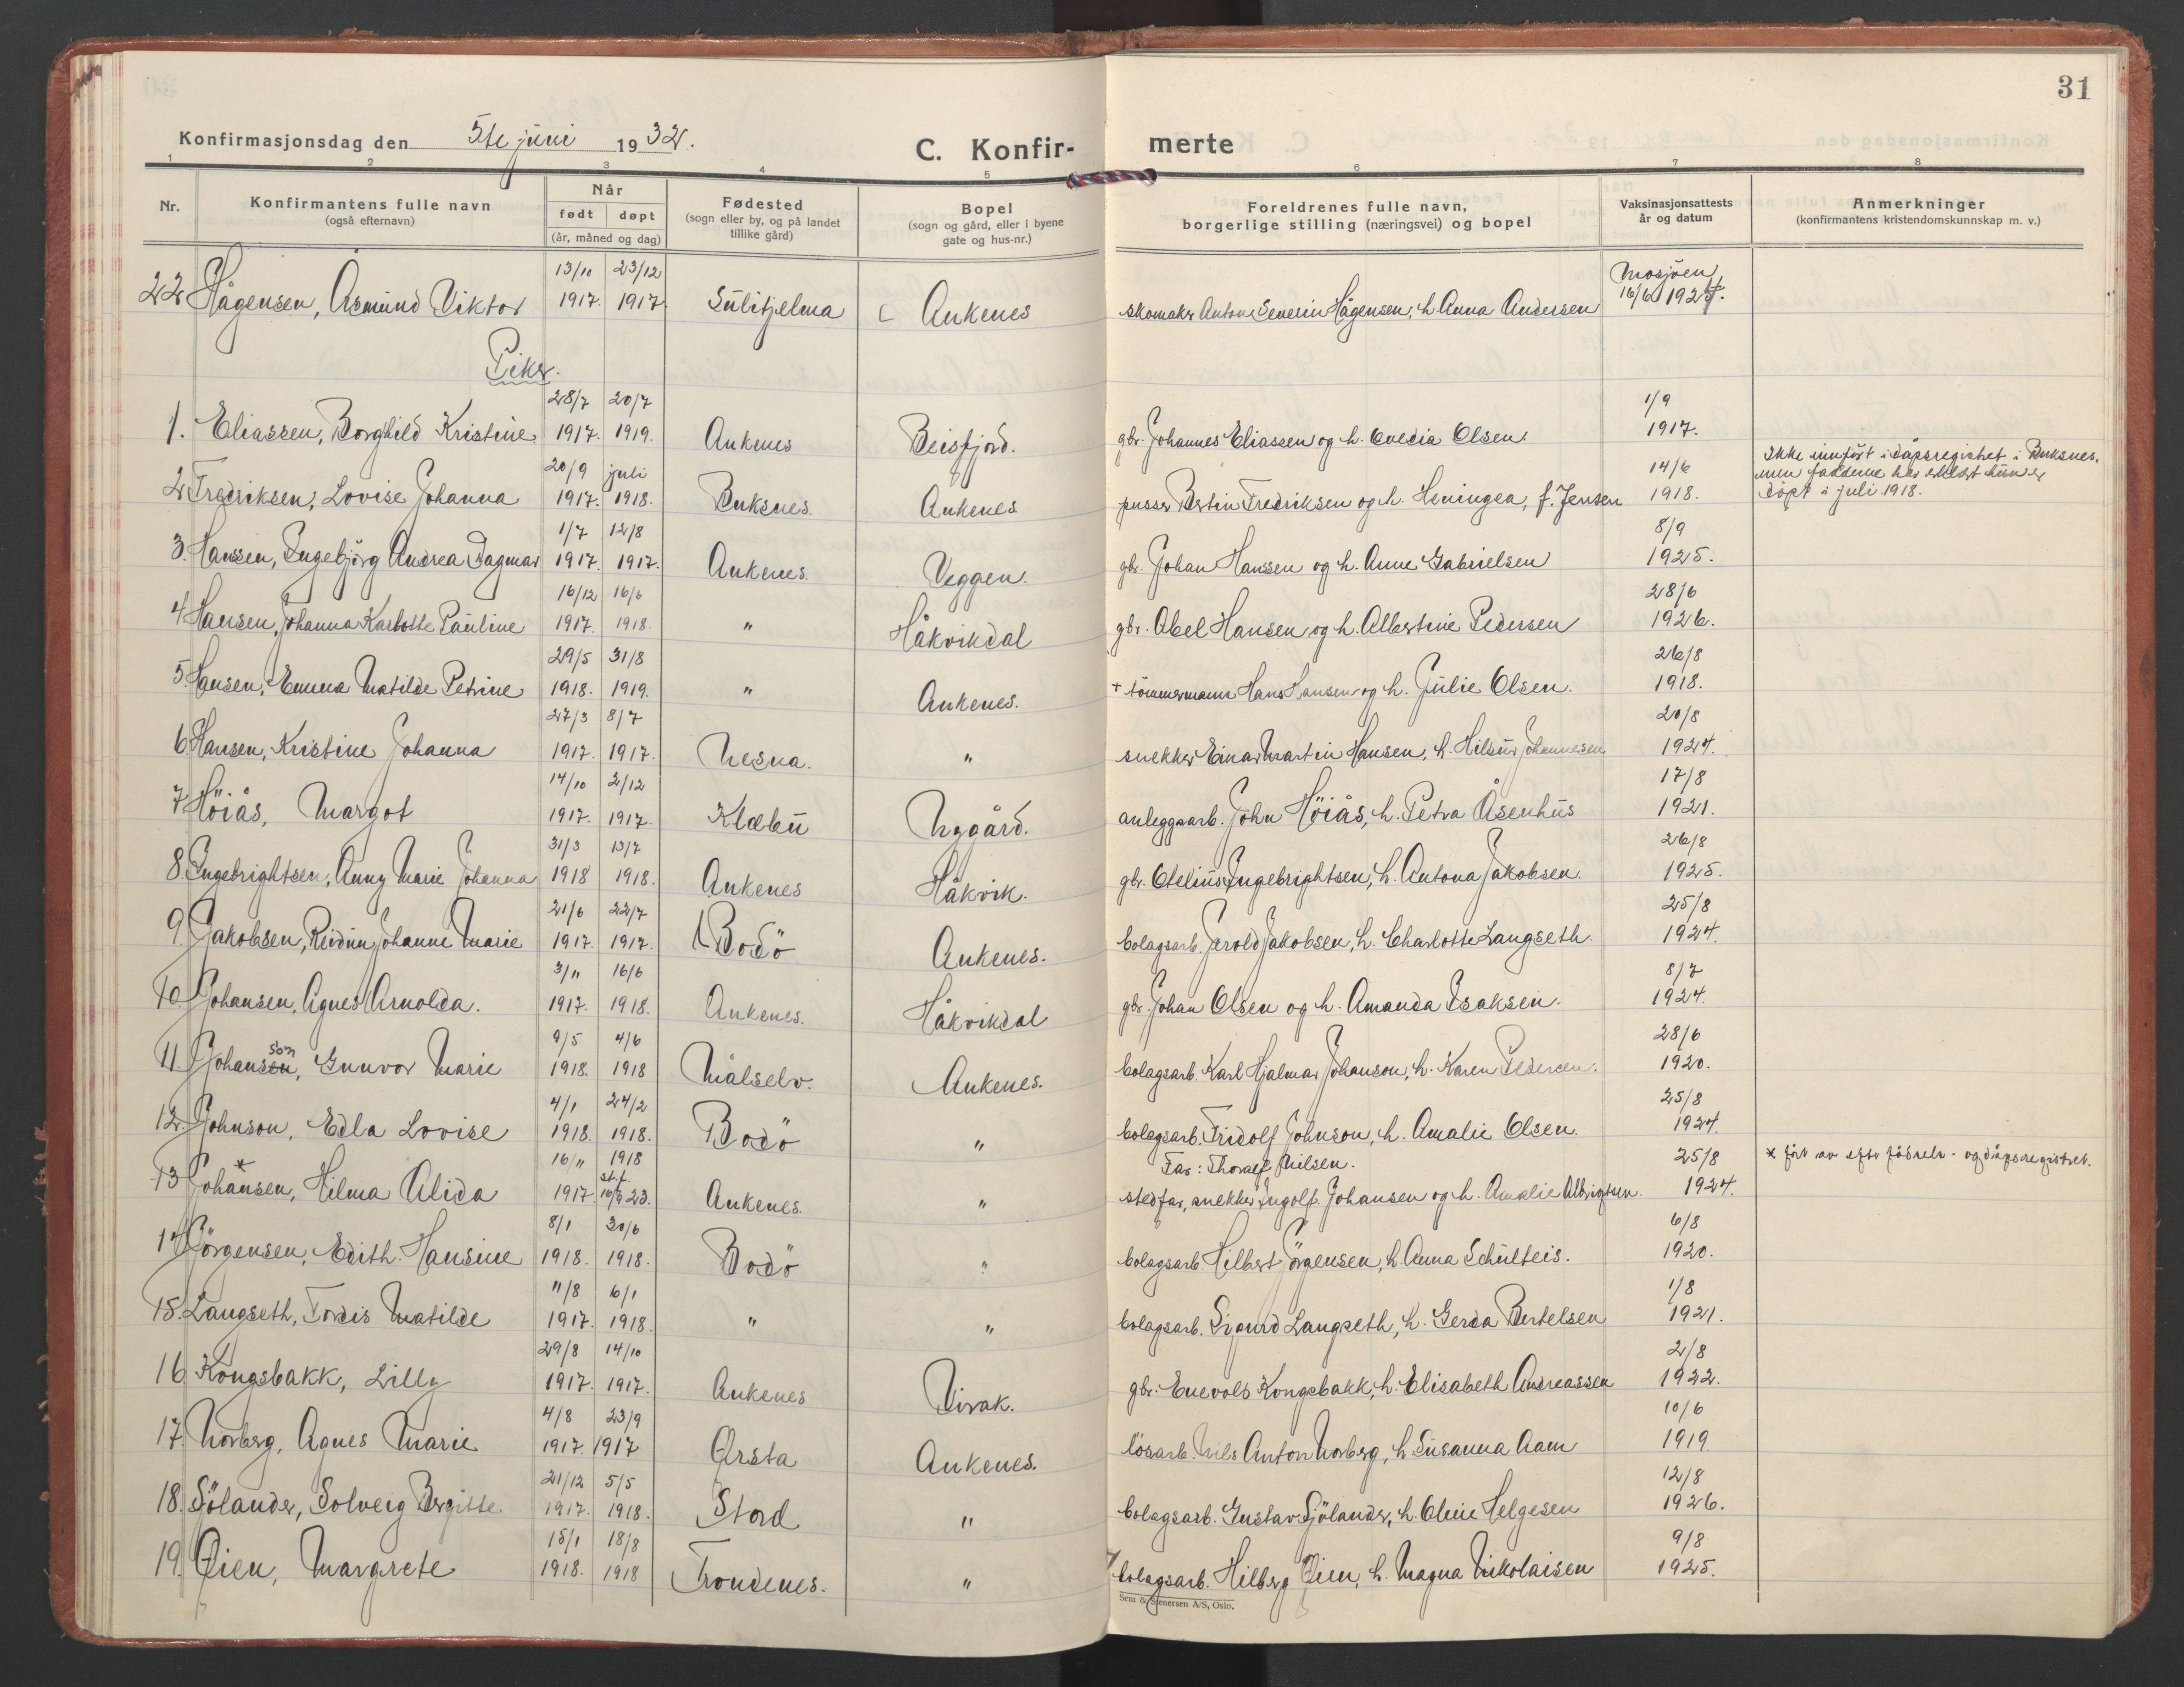 31
Konfirmasjonsdag den 5te juni 1932.
C. Konfir-
merte
1 2 3 4 5 6 7 8
Nr.
Konfirmantens fulle navn
(også efternavn)
Når
født døpt
(år, måned og dag)
Fødested
(sogn eller by, og på landet
tillike gård)
Bopel
(sogn og gård, eller i byene
gate og hus-nr.)
Foreldrenes fulle navn,
borgerlige stilling (næringsvei) og bopel
Vaksinasjonsattests
år og datum
Anmerkninger
(konfirmantens kristendomskunnskap m. v.)
13/10 23/12 Mosjöen
22 Hågensen, Asmund Viktor 1917. 1917 Sulitjelma Ankenes skomaker Anton Severin Hågensen, h. Anna Andersen 16/6 1927.
Piker.
28/7 20/7 1/9
1. Eliassen, Borghild Kristine 1917. 1919. Ankenes Beisfjord. gbr. Johannes Eliassen og h. Ovedia Olsen. 1917.
20/9 juli 14/6 Ikke innfört i dåpsregistret i Buksnes,
2. Fredriksen, Lovise Johanna 1917. 1918. Buksnes. Ankenes pusser Bertin Fredriksen og h. Heningea, f. Jensen 1918. men fadderne har erklært hun er
döpt i juli 1918.
1/7 12/8 8/9
3. Hansen, Ingebjörg Andrea Dagmar 1917. 1917. Ankenes. Veggen. gbr. Johan Hansen og h. Anne Gabrielsen 1925.
16/12 16/6 28/6
4 Hansen, Johanna Karlotte Pauline 1917. 1918. " Håkvikdal gbr. Abel Hansen og h. Albertine Pedersen 1926.
29/5 31/8 26/8
5. Hansen, Emma Matilde Petrine 1918. 1919. " Ankenes. + tömmermann Hans Hansen og h. Julie Olsen. 1918.
27/3 8/7 20/8
6 Hansen, Kristine Johanna 1917. 1917. Nesna. " snekker Einar Martin Hansen, h. Hilsür Johannesen 1924.
14/10 2/12 17/8
7 Höiås, Margot 1917. 1917. Klæbu Nygård. anleggsarb. John Höiås, h. Petra Åsenhus 1921.
31/3 13/7 26/8
8. Ingebrightsen, Anny Marie Johanna 1918 1918. Ankenes Håkvik. gbr. Otelius Ingebrightsen, h. Antona Jakobsen. 1925.
21/6 22/7 25/8
9. Jakobsen, Reidun Johanne Marie 1917. 1917. Bodö Ankenes. bolagsarb. Jarold Jakobsen, h. Charlotte Langseth. 1924.
3/11 16/6 8/7
10 Johansen, Agnes Arnolda. 1917. 1918. Ankenes. Håkvikdal gbr. Johan Olsen og h. Amanda Isaksen. 1924.
son 9/5 4/6 28/6
11. Johansen, Gunvor Marie 1918. 1918 Målselv. Ankenes. bolagsarb. Karl Hjalmar Johanson, h. Karen Pedersen. 1920.
4/1 24/2 25/8
12. Johnson, Edla Lovise 1918. 1918. Bodö " bolagsarb. Fridolf Johnson, h. Amalie Olsen. 1924.
16/11 1918 Far: Thoralf Nilsen. 25/8 * fört av efter födsels- og dåpsregistret.
st.f.
13 Johansen,* Hilma Alida 1917 16/9 23. Ankenes. " stedfar, snekker Ingolf Johansen og h. Amalie Albrigtsen. 1924.
8/1 30/6 6/8
14 Jörgensen, Edith Hansine 1918. 1918. Bodö " bolagsarb Hilbert Jörgensen, h. Anna Schulteis. 1920.
11/8 6/1 1/8
15. Langseth, Tordis Matilde 1917. 1918. " " bolagsarb. Sigurd Langseth, h. Gerda Bertelsen 1921.
29/8 14/10 2/8
16 Kongsbakk, Lilly 1917. 1917. Ankenes Virak. gbr. Enevold Kongsbakk, h. Elisabeth Andreassen 1922.
4/8 23/9 10/6
17. Norberg, Agnes Marie 1917. 1917 Ørsta Ankenes. lösarb. Nils Anton Norberg, h. Susanna Aam 1919
21/12 5/5 12/8
18. Sjölander, Solveig Bergitte 1917. 1918. Stord " bolagsarb. Gustav Sjölander, h. Oline Helgesen 1926.
15/1 18/8 9/8
19. Øien, Margrete 1918. 1918 Trondenes. " bolagsarb. Hilberg Øien, h. Magna Nikolaisen 1925.
Sem & Stenersen A/S, Oslo.